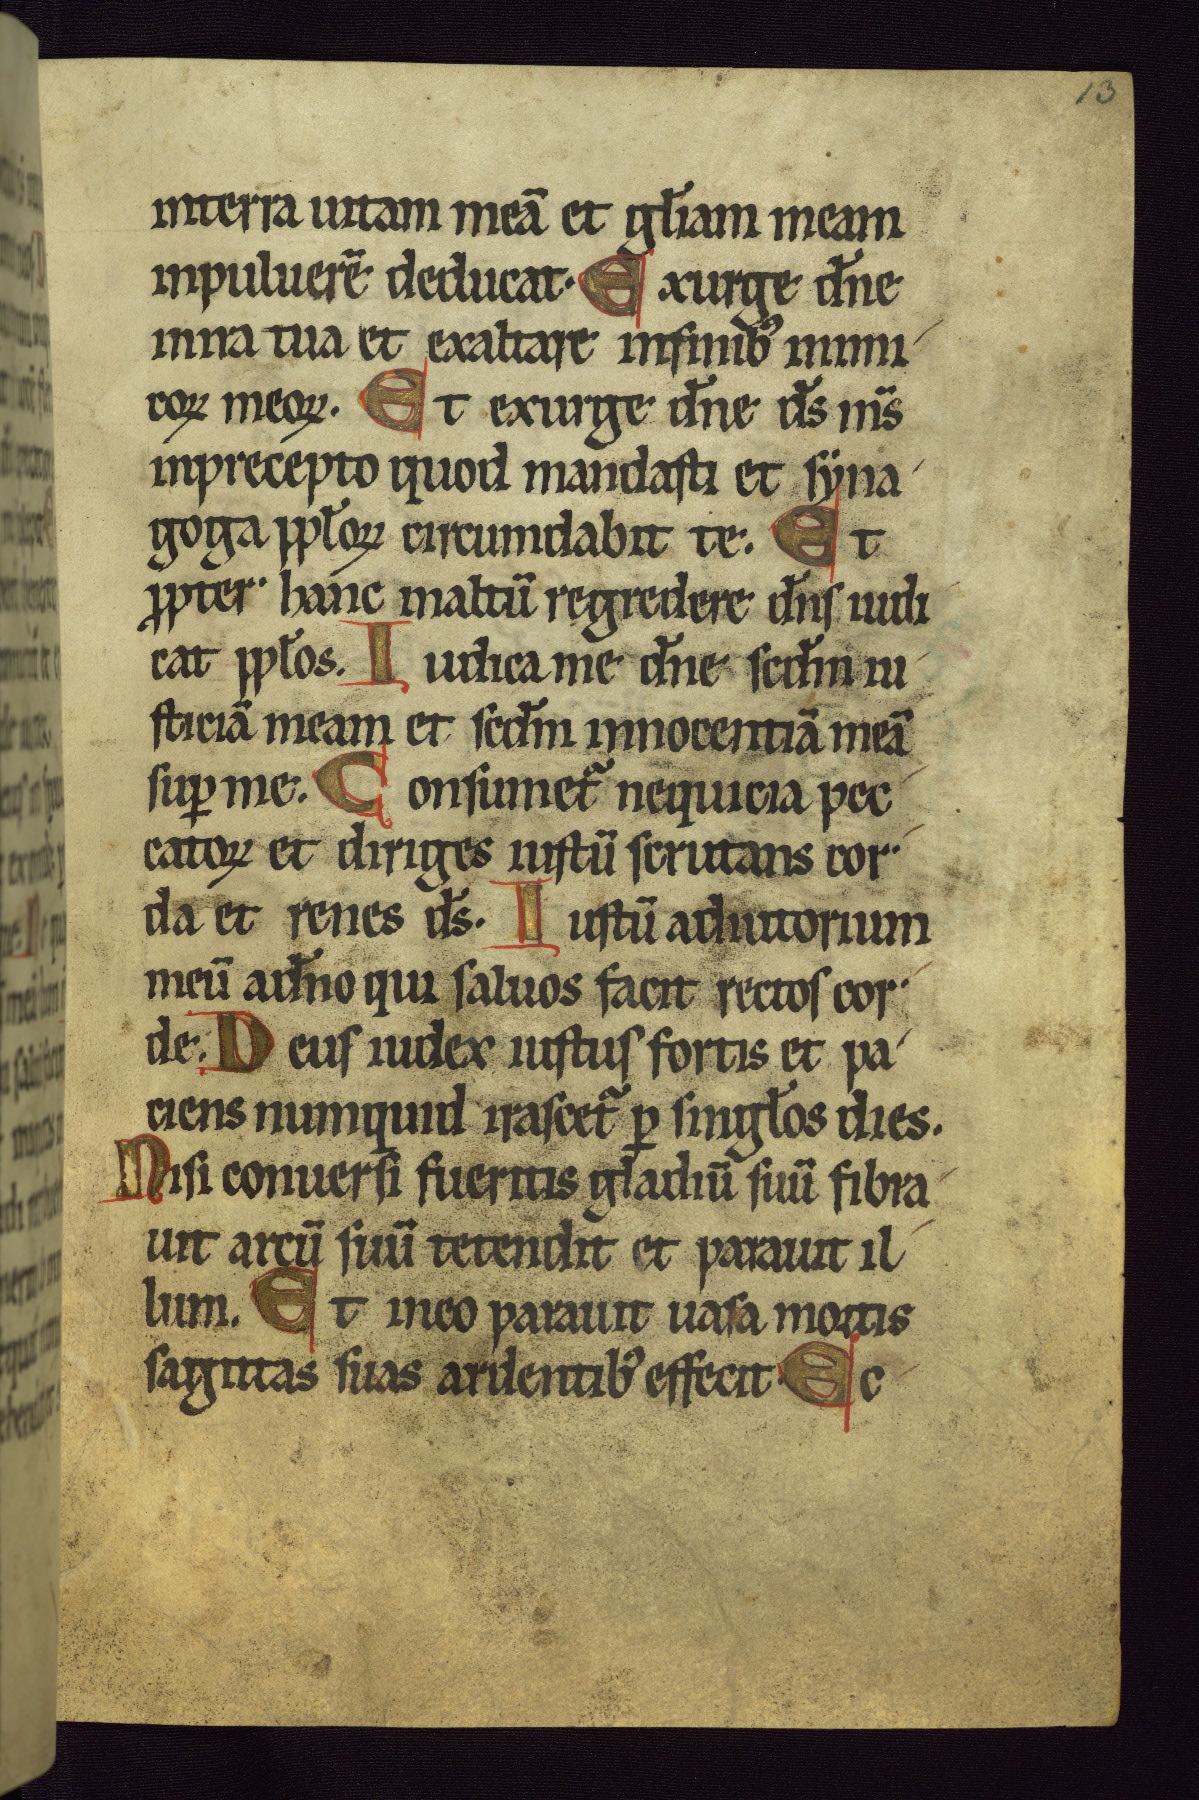 13
interra uitam meā et gl̄iam meam
inpuluerē deducat. Exurge dn̄e
inira tua et exaltare infinibꝰ inimi
coꝝ meoꝝ. Et exurge dn̄e ds̄ ms̄
inprecepto quod mandasti et syna
goga ppl̄oꝝ circumdabit te. Et
ꝓpter hanc inaltū regredere dn̄s iudi
cat ppl̄os. Iudica me dn̄e scd̄m iu
sticiā meam et scd̄m innocentiā meā
suꝑ me. Consumet᷑ nequicia pec
catoꝝ et diriges iustū scrutans cor
da et renes ds̄. Iustū adiutorium
meū adn̄o qui saluos facit rectos cor
de. Deus iudex iustus fortis et pa
ciens numquid irascet᷑ ꝑ singl̄os dies.
Nisi conuersi fueritis gladiū suū fibra
uit arcū suū tetendit et parauit il
lum. Et ineo parauit uasa mortis
sagittas suas ardentibꝰ effecit. Ec